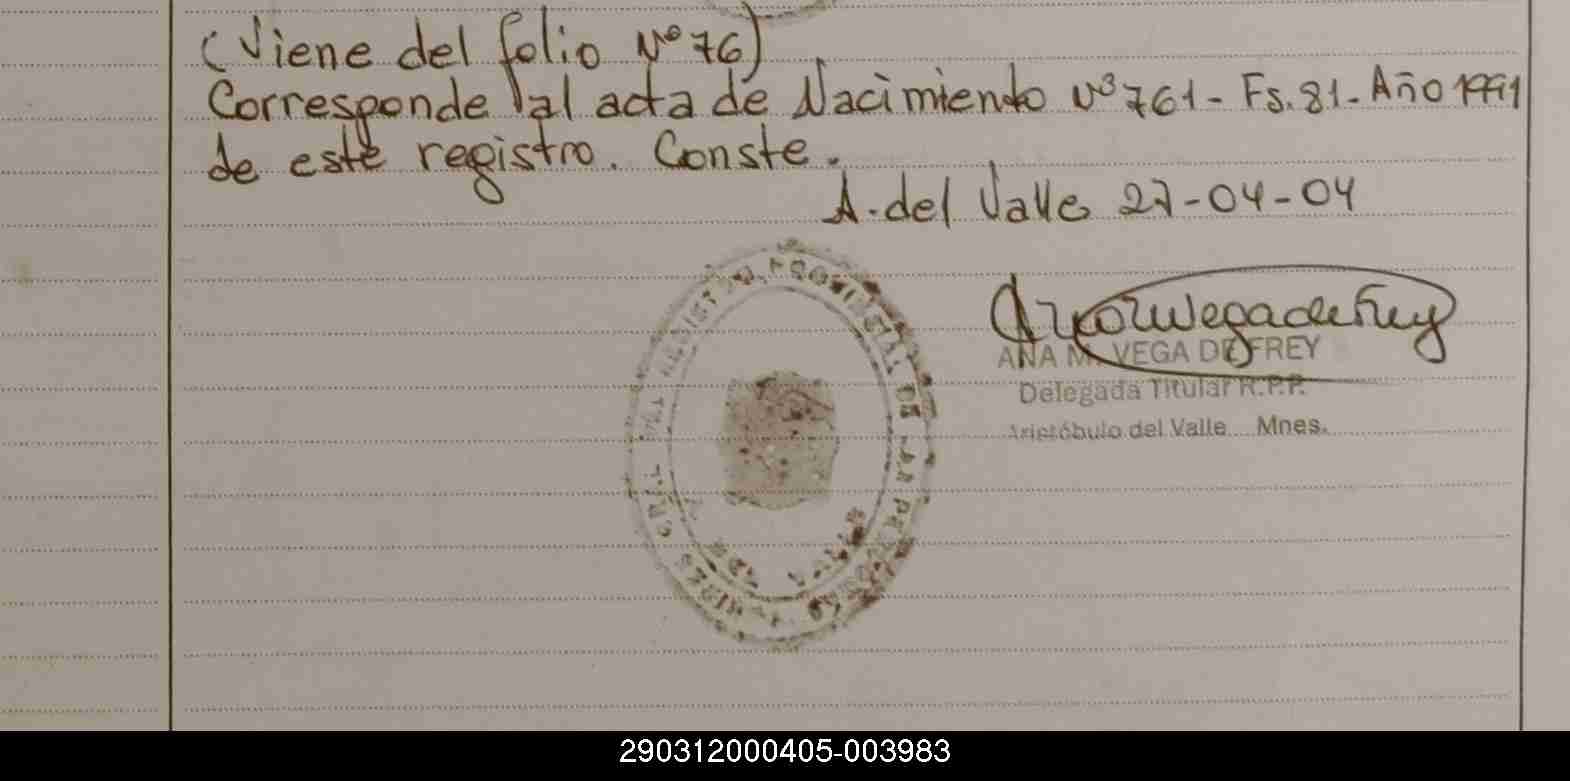 (Viene del folio Nº 76)
Corresponde al acta de Nacimiento Nº 761 - Fs. 81 - Año 1991
de este registro. Conste.
A. del Valle 27-04-04
ANA M. VEGA DE FREY
Delegada Titular R.P.P.
Aristóbulo del Valle Mnes.
REGISTRO PROVINCIAL DE LAS PERSONAS
290312000405-003983